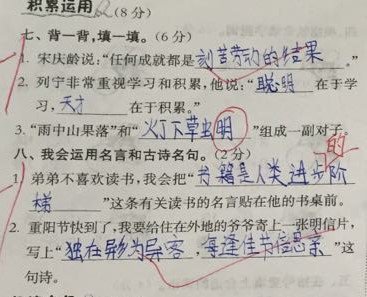 积累运用(8分)
七、背一背,填一填。(6分)
1. 宋庆龄说:“任何成就都是刻苦劳动的结果。”
2. 列宁非常重视学习和积累,他说:“聪明在于学
习,天才在于积累。”
3. “雨中山果落”和“灯下草虫明”组成一副对子。
八、我会运用名言和古诗名句。(2分)
的
1. 弟弟不喜欢读书,我会把“书籍是人类进步阶
梯”这条有关读书的名言贴在他的书桌前。
2. 重阳节快到了,我要给住在外地的爷爷寄上一张明信片,
写上“独在异乡为异客,每逢佳节倍思亲”这
句诗。